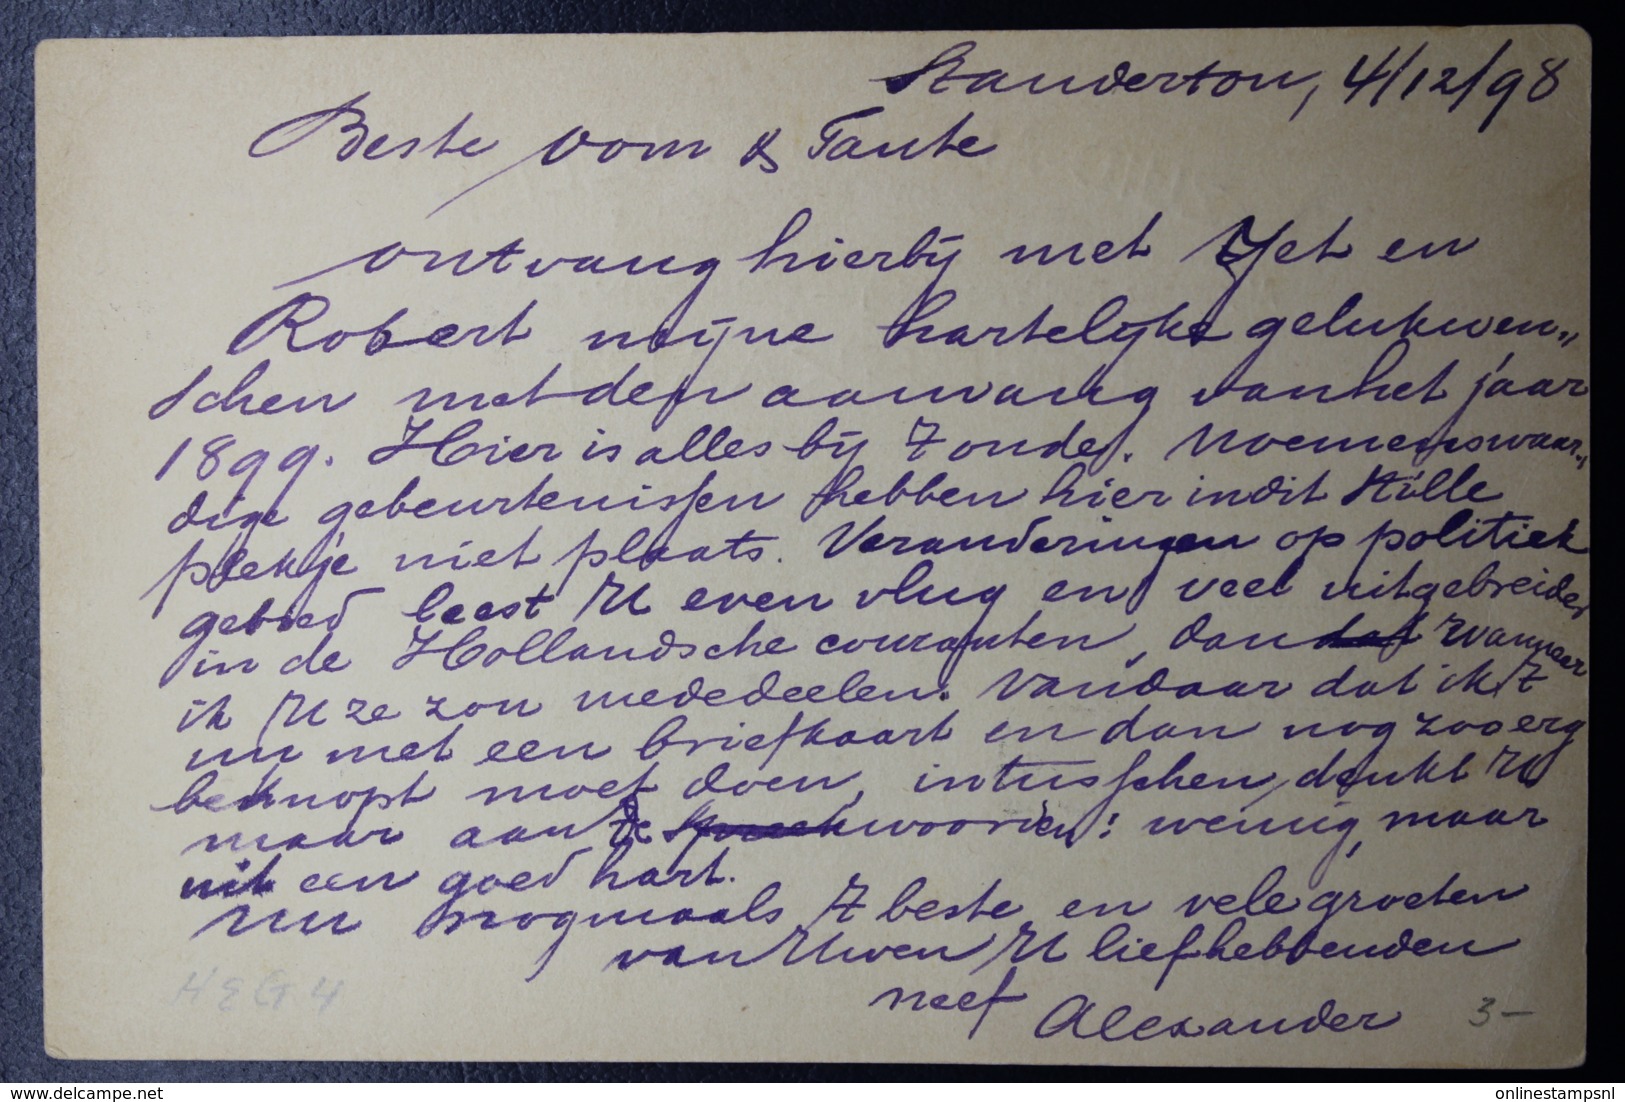 Standerton, 4/12/98
Beste Oom & Tante
ontvang hierbij met Jet en
Robert mijne hartelijke gelukwen„
schen met den aanvang van het jaar
1899. Hier is alles bij 't oude. Noemenswaar„
dige gebeurtenissen hebben hier in dit stille
plekje niet plaats. Veranderingen op politiek
gebied leest U even vlug en veel uitgebreider
in de Hollandsche couranten, dan wanneer
ik U ze zou mededeelen. Vandaar dat ik 't
nu met een briefkaart en dan nog zoo erg
beknopt moet doen, intusschen, denkt U
maar aan de woorden: weinig, maar
uit een goed hart.
Nu nogmaals 't beste en vele groeten
van Uwen U liefhebbenden
neef Alexander
H & G 4
3-
delcampe.net
onlinestampsnl